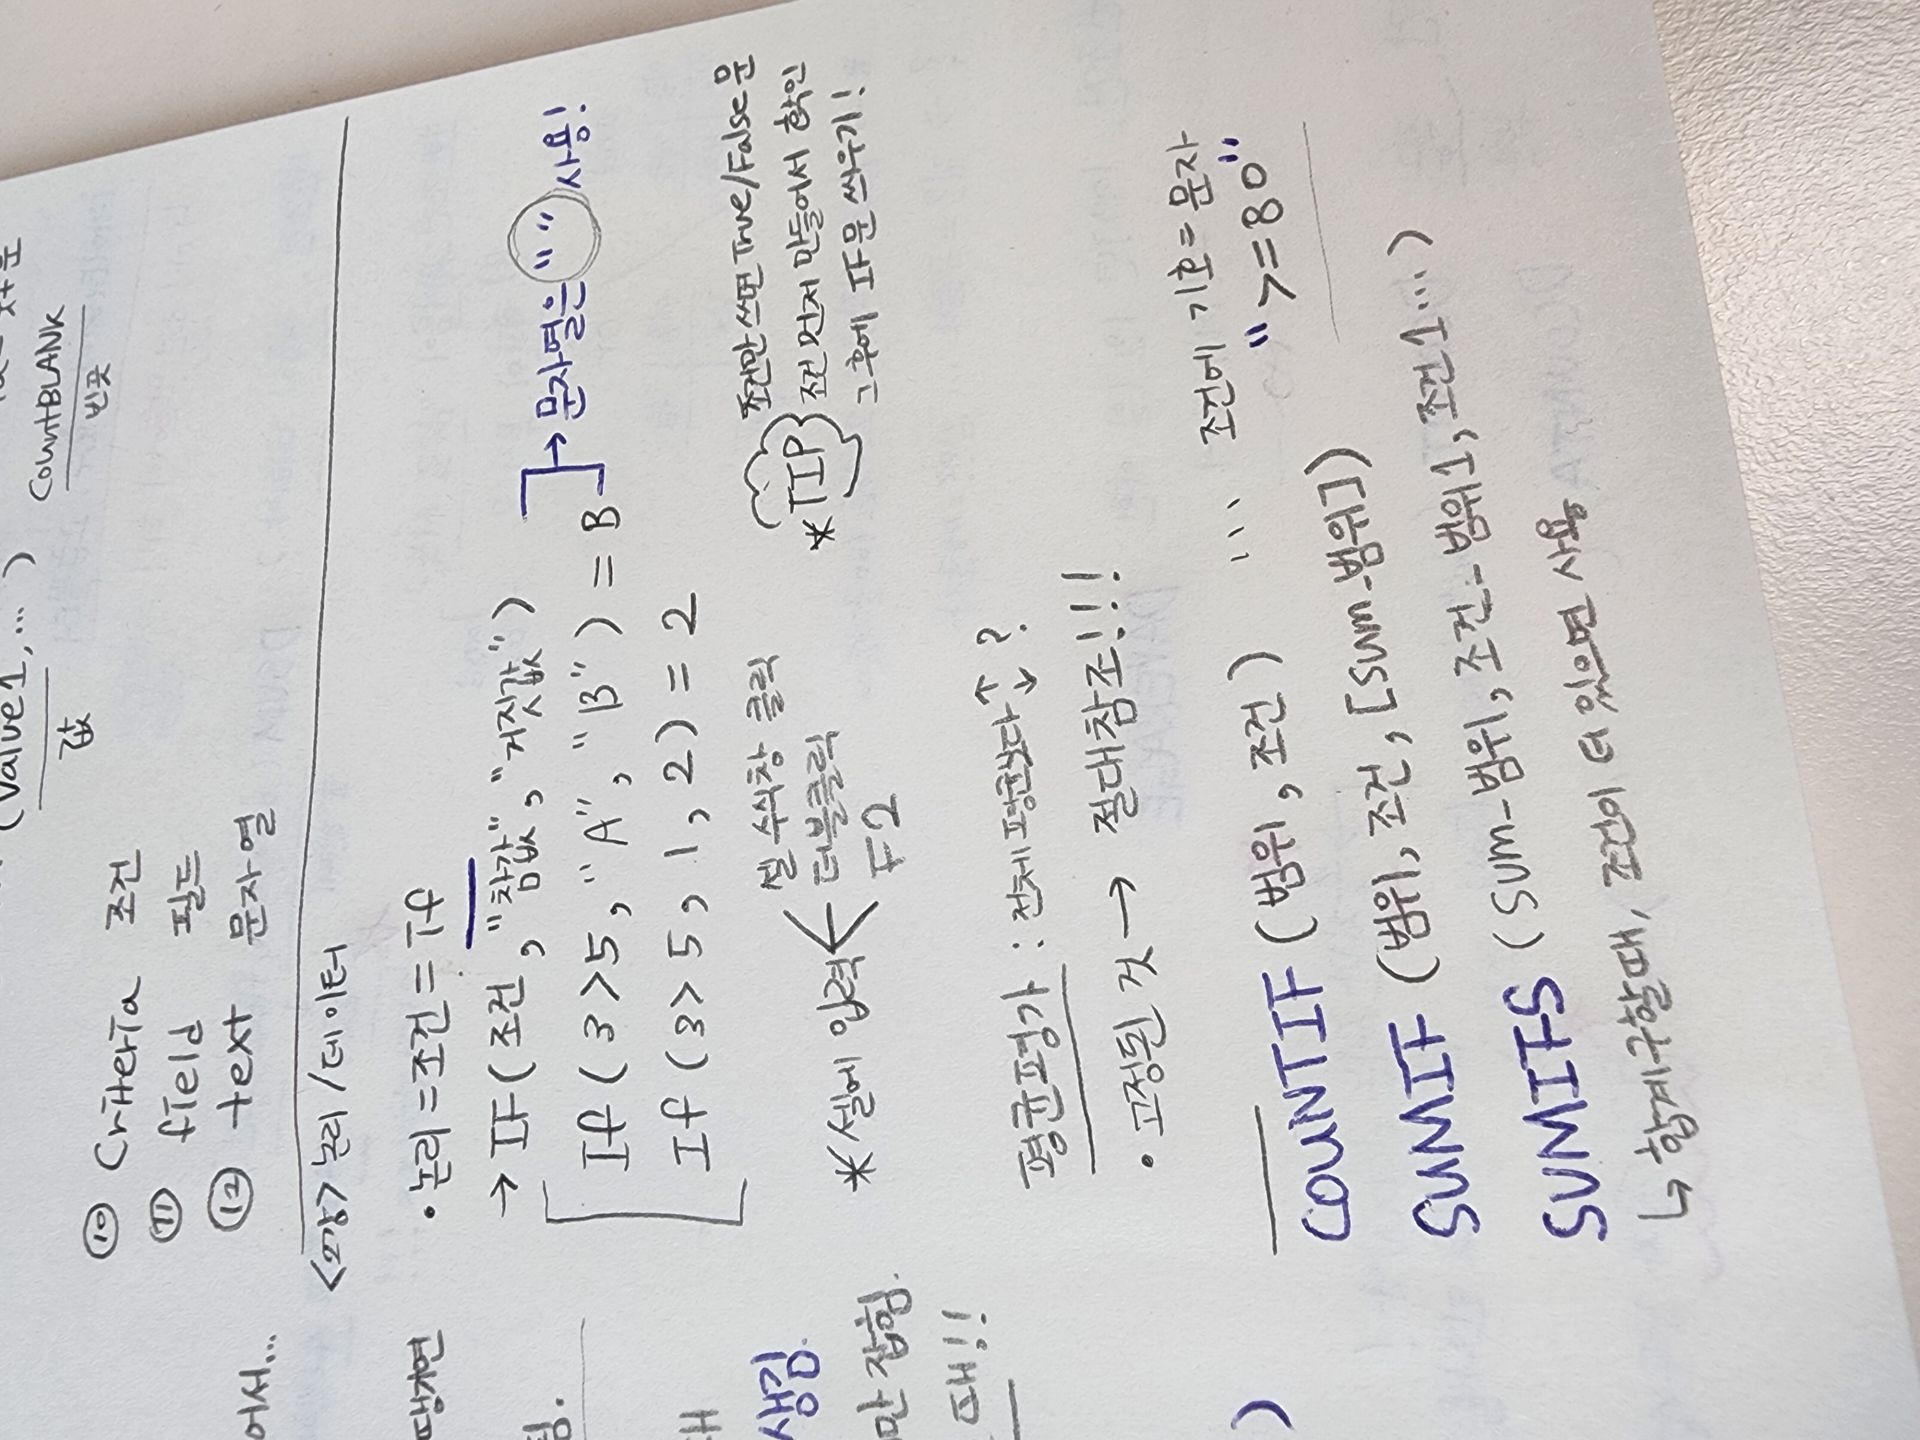 (value1, ... )
값
CountBLANK
빈곳
⑩ Criteria 조건
⑪ field 필드
⑫ text 문자열
<3강> 논리/데이터
• 논리=조건=if
→ IF(조건, "참값", "거짓값")
If (3>5, "A", "B") = B
If (3>5, 1, 2) = 2
→ 문자열은 " " 사용!
*셀에 입력
셀 수식창 클릭
더블클릭
F2
*TIP
조건만 쓰면 True/False문
조건 먼저 만들어서 확인
그후에 IF문 씌우기!
평균평가 : 전체평균보다 ↑↓?
• 고정된 것 → 절대참조!!!
COUNTIF (범위, 조건) ... 조건에 기호=문자
">=80"
SUMIF (범위, 조건, [sum-범위])
SUMIFS (sum-범위, 조건-범위1, 조건1...)
↳ 합계구할때, 조건이 더 있으면 사용
어서...
땡겨면
생김.
만 잡힘.
때!!
)